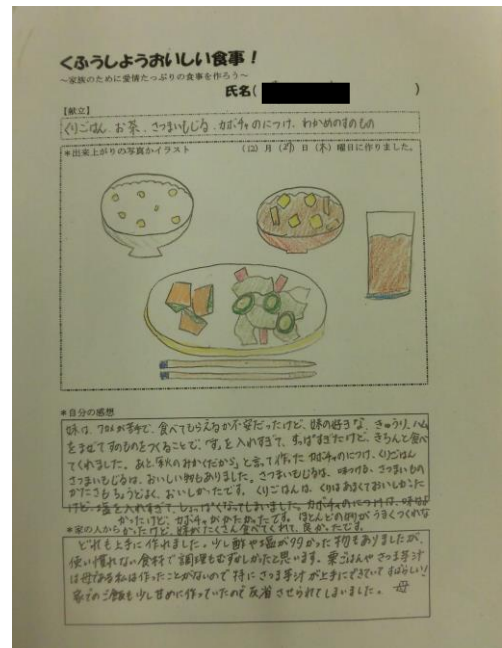 くふうしようおいしい食事！
～家族のために愛情たっぷりの食事を作ろう～
氏名( )
【献立】
くりごはん、お茶、さつまいもじる、カボチャのにつけ、わかめのすのもの
＊出来上がりの写真かイラスト (12) 月 (27) 日 (木) 曜日に作りました。
＊自分の感想
妹は、が苦手で、食べてもらえるか不安だったけど、妹の好きな、きゅうり、ハム
をまぜてすのものをつくることで、す。を入れすぎて、すっぱすぎたけど、きちんと食べ
てくれました。あと「秋のみかくだから」と言って作ったカボチャのにつけ、くりごはん
さつまいもじるは、おいしい物もありました。さつまいもじるは、味つけも、さつまいもの
かたさもちょうどよく、おいしかったです。くりごはんは、くりはあまくておいしかった
けど、塩を入れすぎて、しょっぱくなってしまいました。カボチャのにつけは、味はよ
かったけど、カボチャがかたかったです。ほとんどの物がうまくつくれな
＊家の人から
かったけど、妹がたくさん食べてくれて、良かったです。
どれも上手に作れました。少し酢や塩が多かった物もありましたが、
使い慣れない食材で調理もむずかしかったと思います。栗ごはんやさつま芋汁
は母である私は作ったことがないので特にさつま芋汁が上手にできていてすばらしい！
家でのご飯も少し甘めに作っていたので反省させられてしまいました。 母